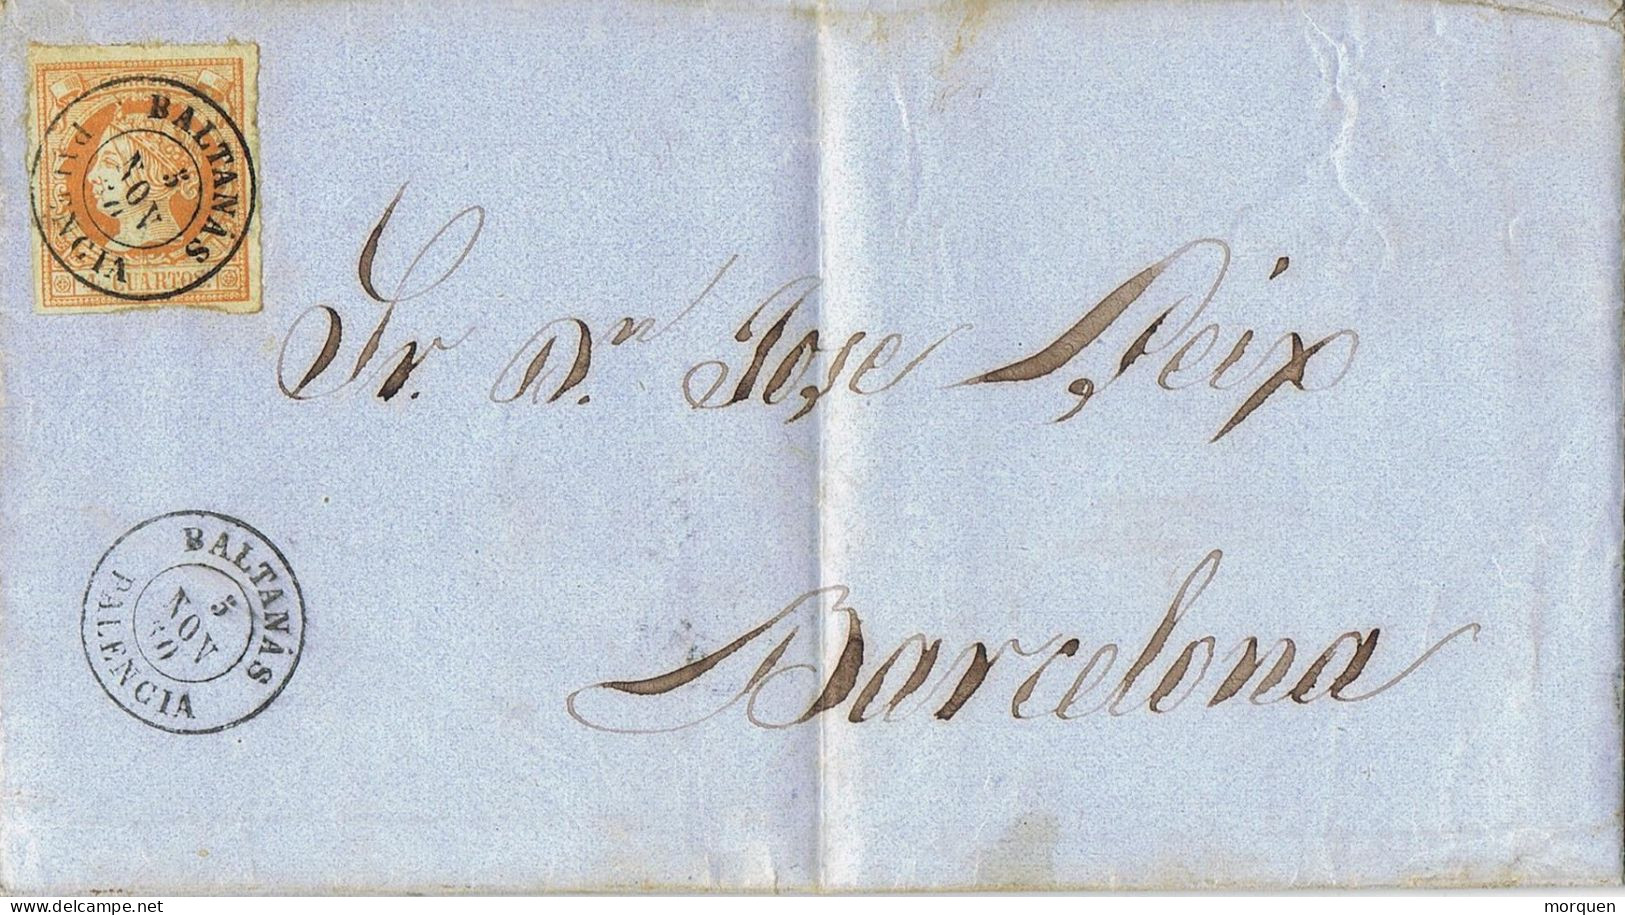 BALTANÁS
5
NOV
60
PALENCIA
CUARTOS
Sr. Dn. Jose Peix
Barcelona
BALTANÁS
5
NOV
60
PALENCIA
morquen